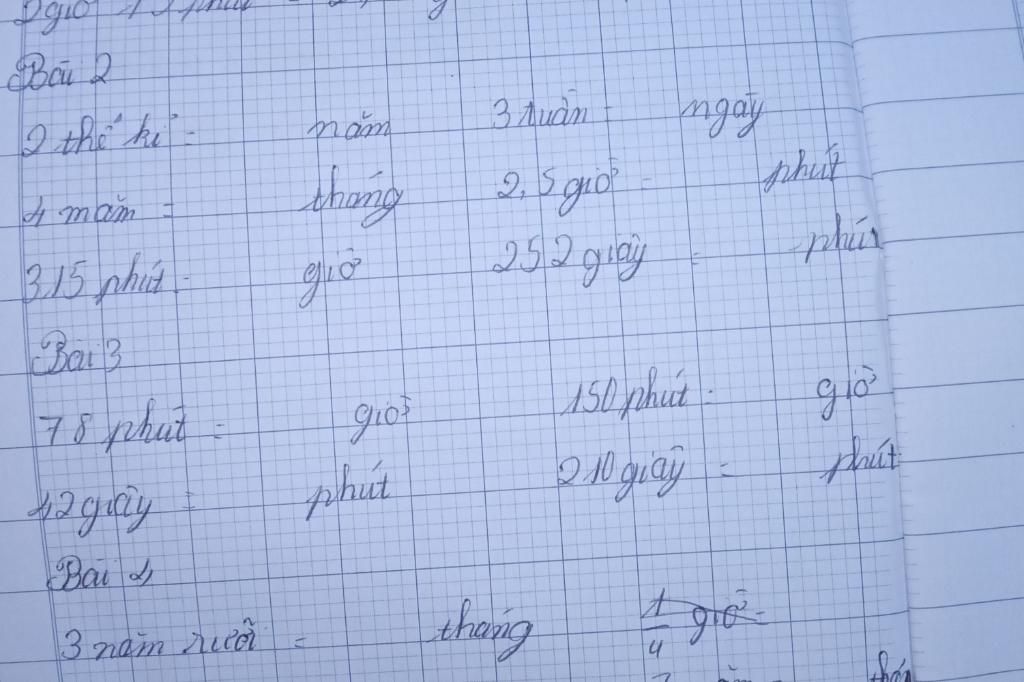 2 giờ
Bài 2
2 thế kỉ = năm 3 tuần = ngày
4 năm = tháng 2,5 giờ = phút
315 phút = giờ 252 giây = phút
Bài 3
78 phút = giờ 150 phút = giờ
42 giây = phút 210 giây = phút
Bài 4
3 năm rưỡi = tháng 1/4 giờ =